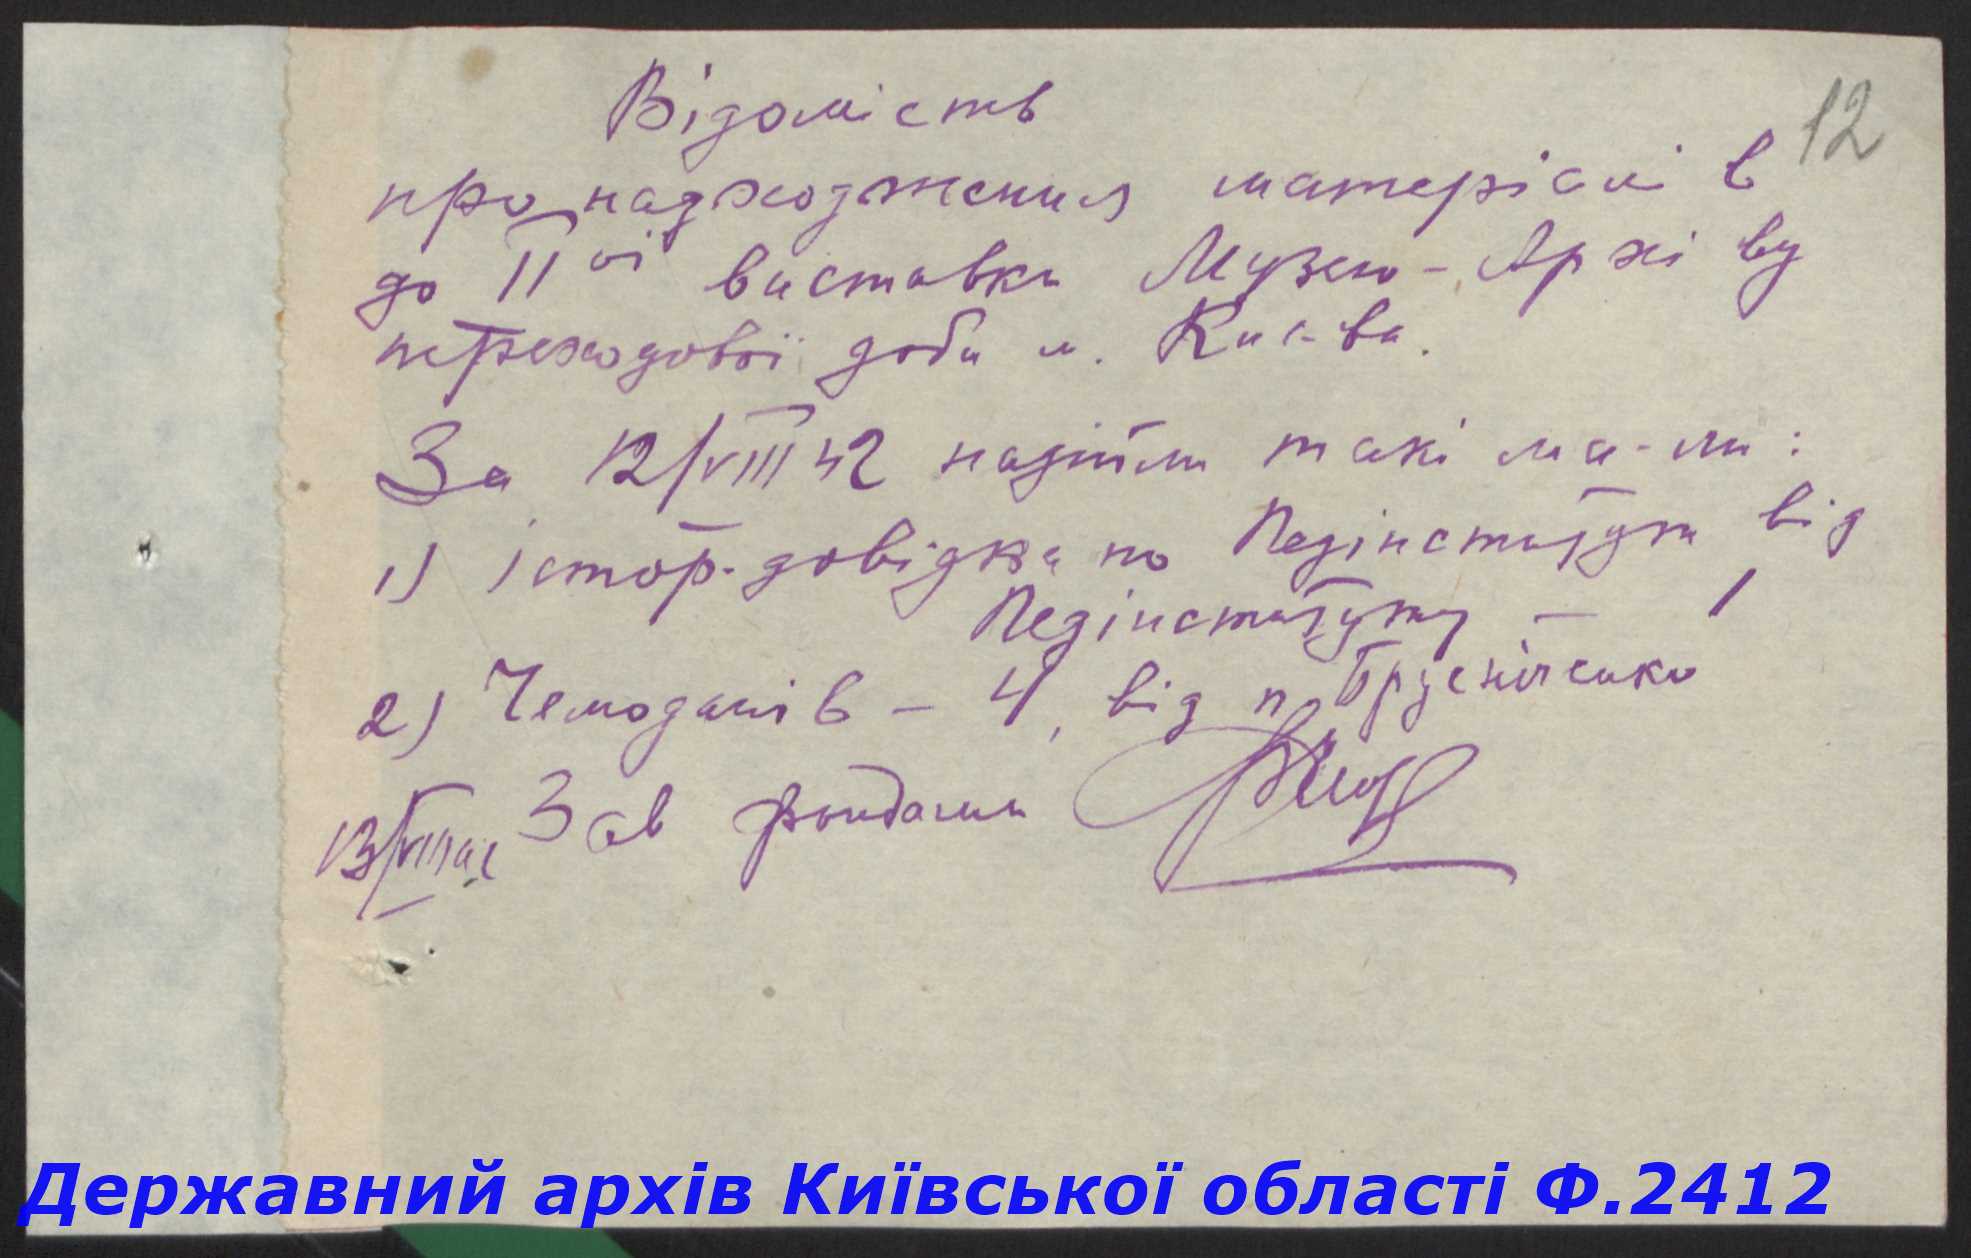 12
Відомість
про надходження матеріалів
до II ої виставки Музею-Архіву
переходової доби м. Києва.
За 12/VIII 42 надійшли такі ма-ли:
1) істор. довідка по Педінституту від
Педінституту — 1
2) Чемоданів — 4, від п.
13/VIII 42 Зав фондами
Державний архів Київської області Ф.2412